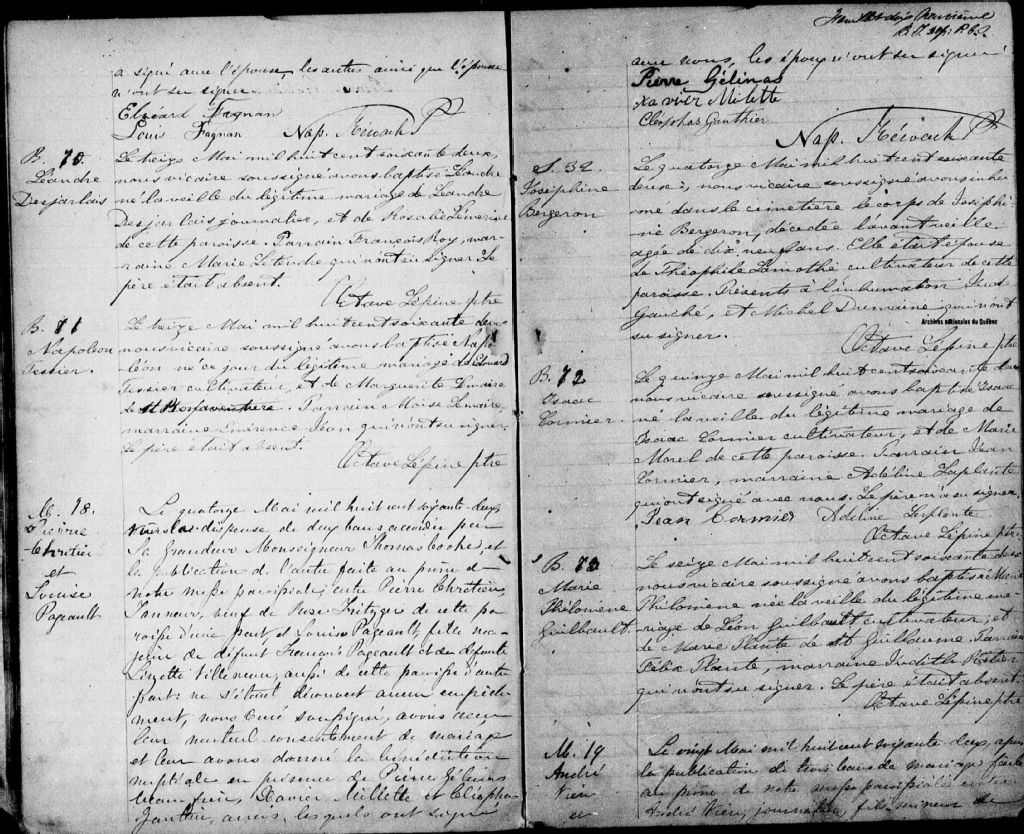 a signé avec l'épouse, les autres ainsi que l'épouse
n'ont su signer.
Elzéard Fagnan
Louis Fagnan Nap. Kéroack Ptre
B. 70.
Léandre
Desjarlais
Le treize Mai mil huit cent soixante deux,
nous vicaire soussigné avons baptisé Léandre
né la veille du légitime mariage de Léandre
Desjarlais journalier, et de Rosalie Lemerise
de cette paroisse. Parrain François Roy, mar-
raine Marie Letendre qui n'ont su signer. Le
père était absent.
Octave Lépine ptre
B. 71
Napoléon
Tessier.
Le treize Mai mil huit cent soixante deux
nous vicaire soussigné avons baptisé Napo-
léon né ce jour du légitime mariage de Edouard
Tessier cultivateur, et de Marguerite Lemaire
de St Bonaventure. Parrain Moïse Lemaire,
marraine Emérence Jean qui n'ont su signer.
Le père était absent.
Octave Lépine ptre
M. 18.
Pierre
Chrétien
et
Louise
Pageault
Le quatorze Mai mil huit cent soixante deux
vu la dispense de deux bans accordée par
Sa Grandeur Monseigneur Thomas Cooke, et
la publication de l'autre faite au prône de
notre messe paroissiale, entre Pierre Chrétien,
Tanneur, veuf de de cette pa-
roisse d'une part et Louise Pageault, fille ma-
jeure de défunt François Pageault et de défunte
Lizette Villeneuve, aussi de cette paroisse d'autre
part: ne s'étant découvert aucun empêche-
ment, nous Curé soussigné, avons reçu
leur mutuel consentement de mariage
et leur avons donné la bénédiction
nuptiale en présence de Pierre Gélinas
beau-frère, Xavier Millette et Cléophas
Gauthier, amis, lesquels ont signé
B. 2
avec nous, les époux n'ont su signer.
Pierre Gélinas
Xavier Milette
Cleophas Gauthier
Nap. Kéroack Ptre
S. 32.
Joséphine
Bergeron
Le quatorze Mai mil huit cent soixante
deux, nous vicaire soussigné avons inhu-
mé dans le cimetière le corps de Joséphi-
ne Bergeron, décédée l'avant veille,
agée de dix neuf ans. Elle était épouse
de Théophile Lamothe cultivateur de cette
paroisse. Présents à l'inhumation Jude
Gauché, et Michel Dumaine qui n'ont
su signer.
Archives nationales du Québec
Octave Lépine ptre
B. 72
Isaac
Cormier.
Le quinze Mai mil huit cent soixante deux
nous vicaire soussigné avons baptisé Isaac
né la veille du légitime mariage de
Isaac Cormier cultivateur, et de Marie
Morel de cette paroisse. Parrain Jean
Cormier, marraine Adéline Laplante
qui ont signé avec nous. Le père n'a su signer.
Jean Cormier Adeline Laplante
Octave Lépine ptre
B. 73
Marie
Philomène
Guilbault.
Le seize Mai mil huit cent soixante deux
nous vicaire soussigné avons baptisé Marie
Philomène née la veille du légitime ma-
riage de Léon Guilbault cultivateur, et
de Marie Plante de St Guillaume. Parrain
Félix Plante, marraine Judith
qui n'ont su signer. Le père était absent.
Octave Lépine ptre
M. 19
André
Vien
et
Le vingt Mai mil huit cent soixante deux, après
la publication de trois bans de mariage faite
au prône de notre messe paroissiale entre
André Vien, journalier, fils mineur de